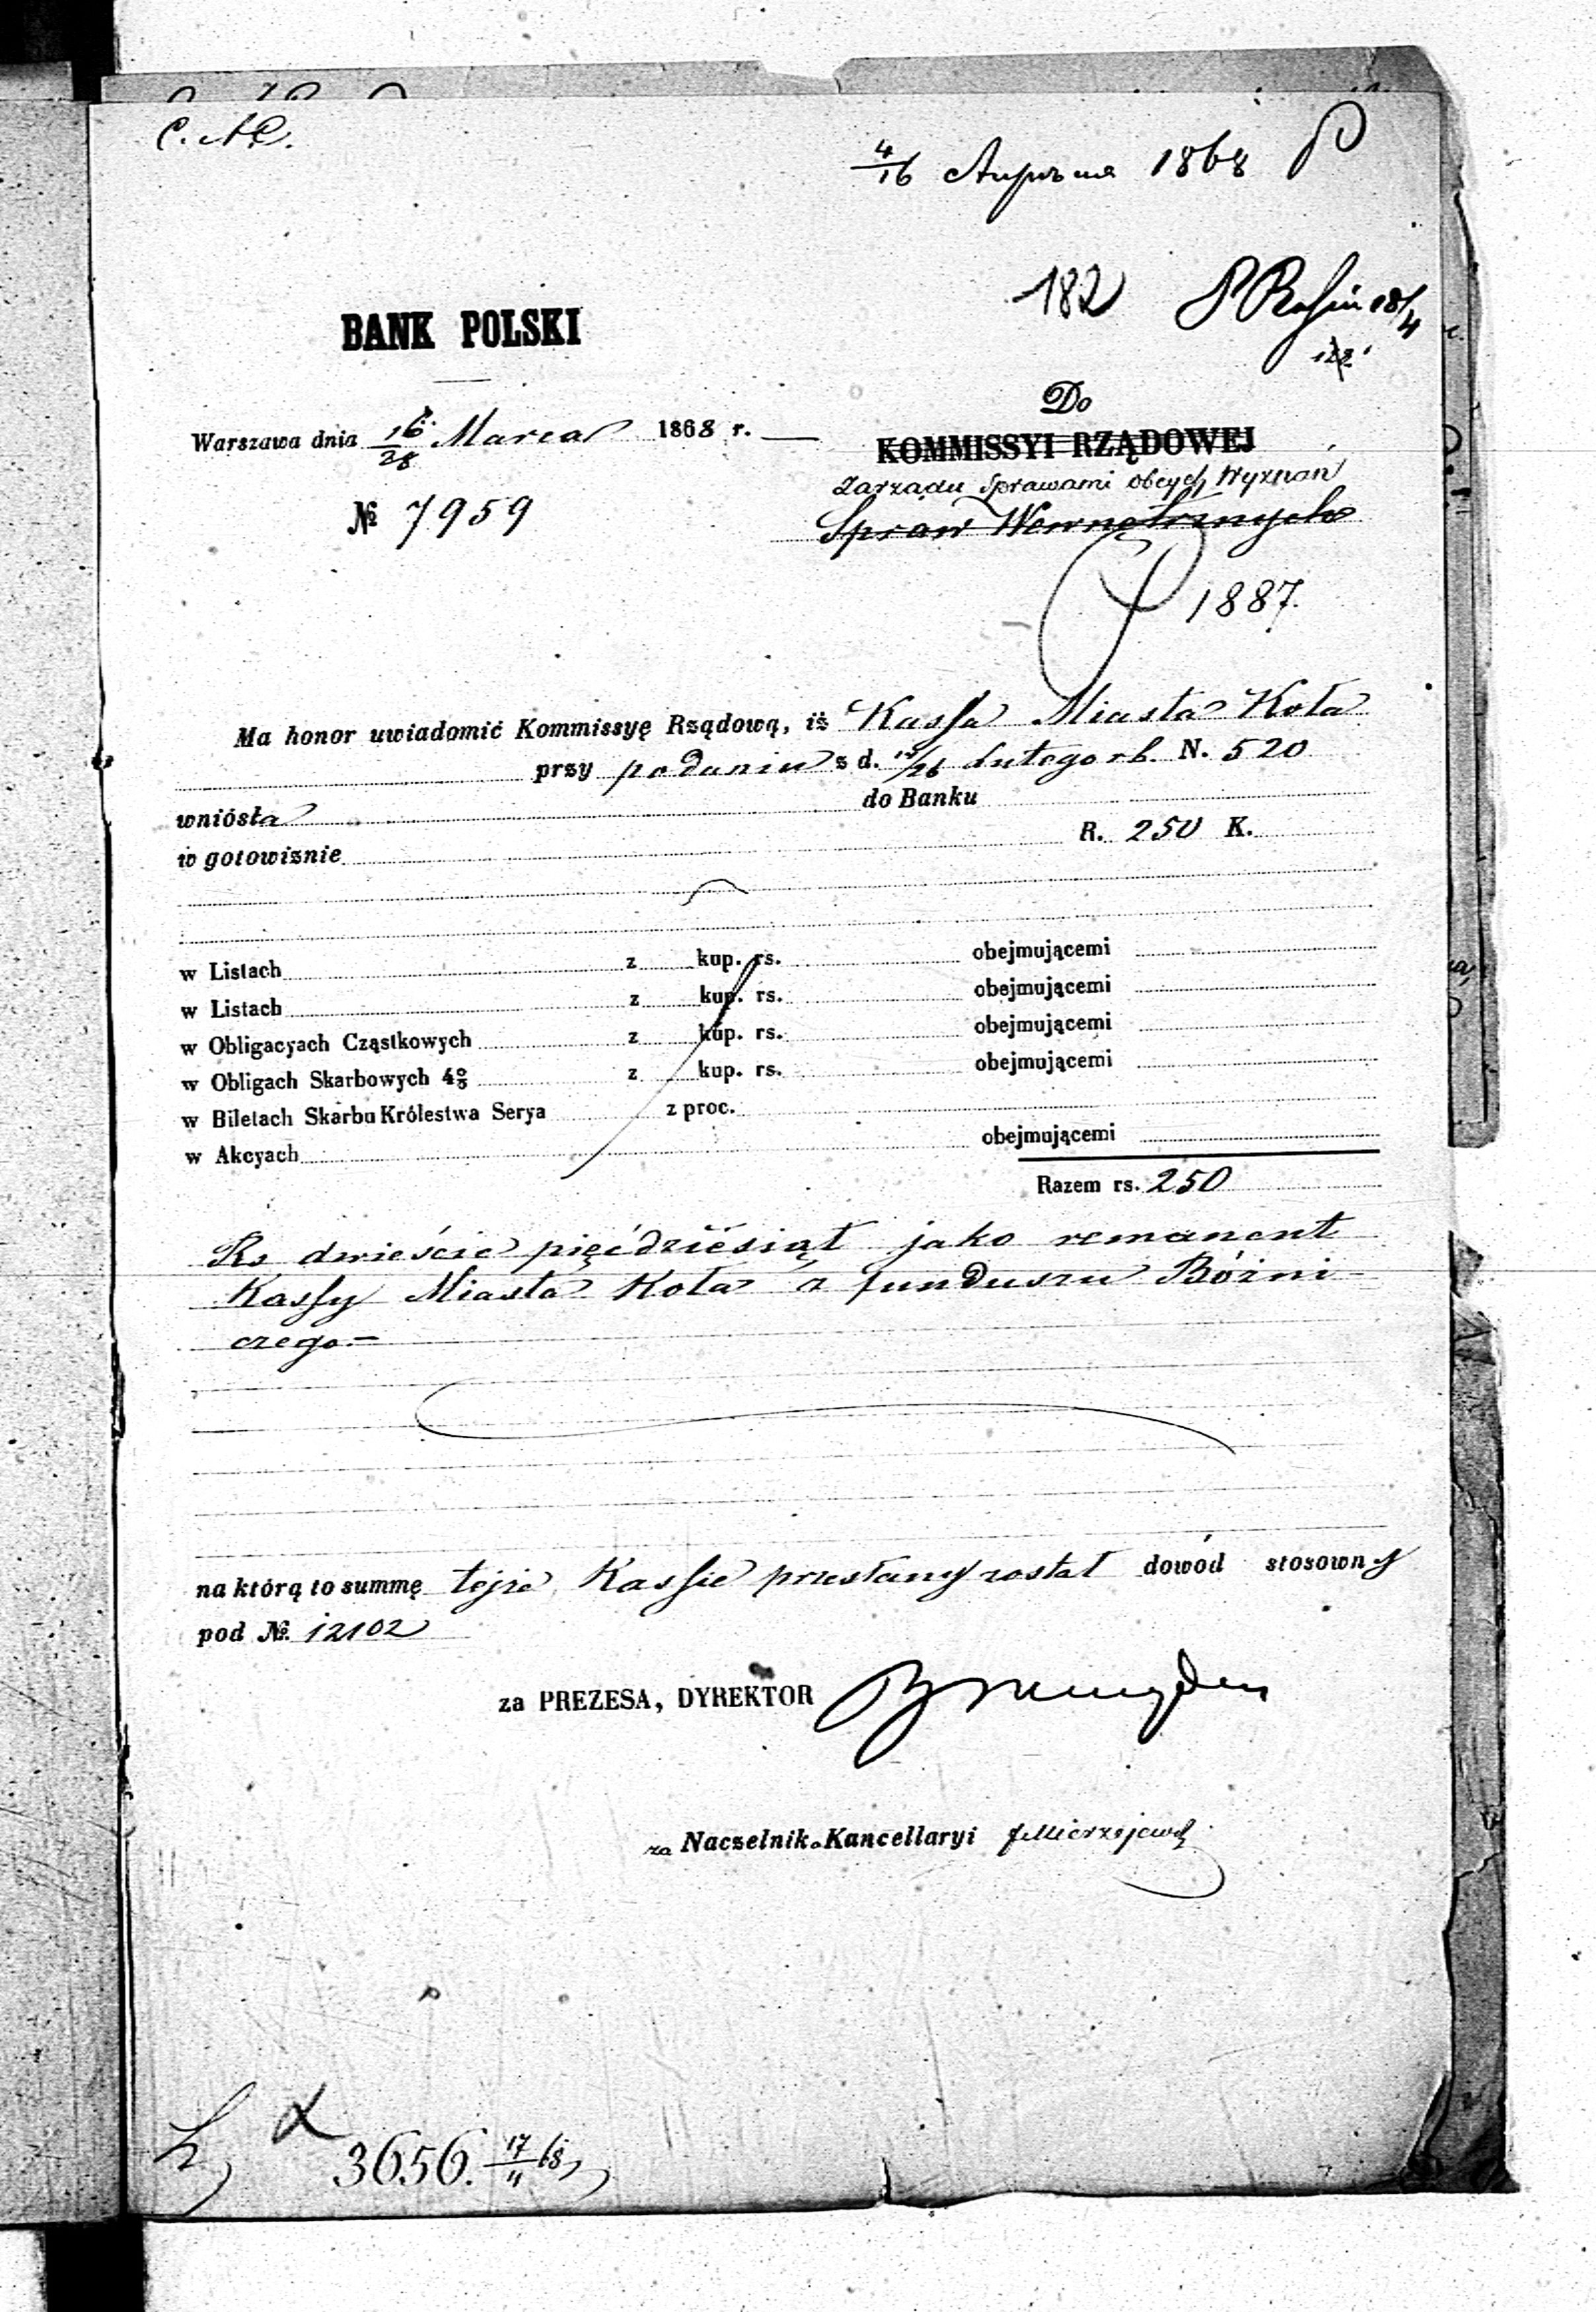 4/16 Апрѣля 1868
182
18/4
BANK POLSKI
Do
Warszawa dnia 16/28 Marca 1868 r.
KOMMISSYI RZĄDOWEJ
Zarządu Sprawami obcych Wyznań
№ 7959
Spraw Wewnętrznych
1887.
Ma honor uwiadomić Kommissyę Rządową, iż Kassa Miasta Koła
przy podaniu z d. 14/26 Lutego rb. N. 520
wniósła do Banku
w gotowiznie R. 250 K.
w Listach z kup. rs. obejmującemi
w Listach z kup. rs. obejmującemi
w Obligacyach Cząstkowych z kup. rs. obejmującemi
w Obligach Skarbowych 4% z kup. rs. obejmującemi
w Biletach Skarbu Królestwa Serya z proc.
w Akcyach obejmującemi
Razem rs. 250
Rs dwieście pięćdziesiąt jako remanent
Kassy Miasta Koła z funduszu Bóżni-
czego.=
na którą to summę tejże Kassie przesłany został dowód stosowny
pod №. 12102
za PREZESA, DYREKTOR
za Naczelnik Kancellaryi JMierzejewski
3656. 17/4 68